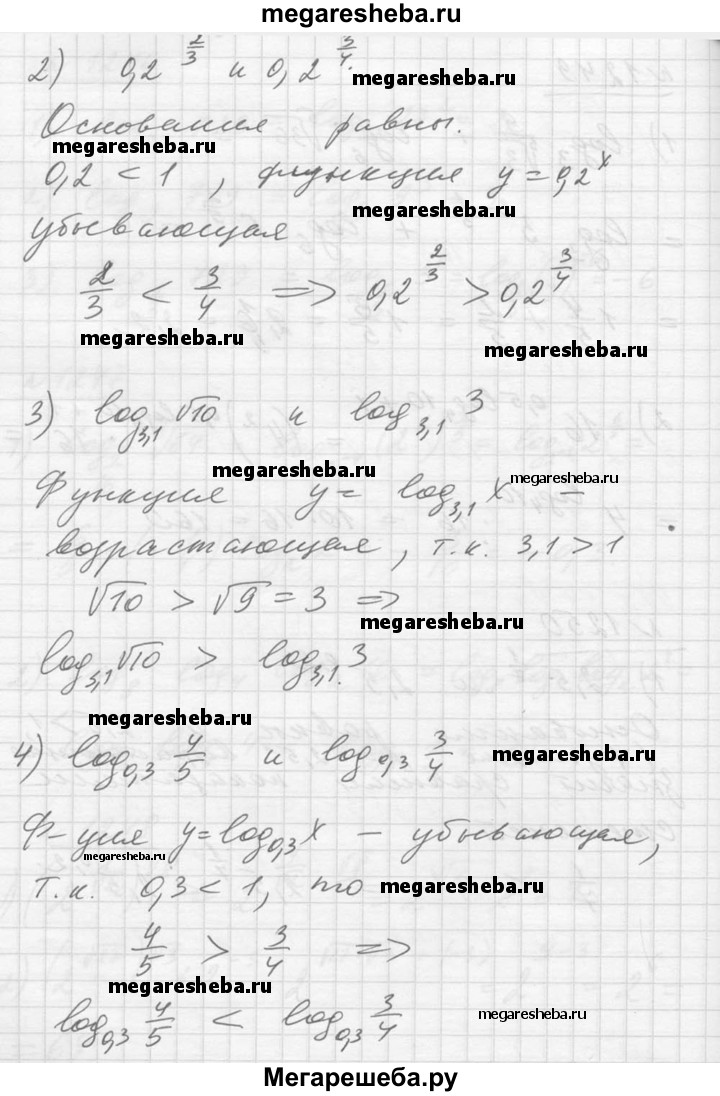 megaresheba.ru
2) 0,2^{2/3} и 0,2^{3/4}
megaresheba.ru
Основания равны.
megaresheba.ru
0,2 < 1, функция y = 0,2^x
megaresheba.ru
убывающая
2/3 < 3/4 => 0,2^{2/3} > 0,2^{3/4}
megaresheba.ru
megaresheba.ru
3) log_{3,1} √10 и log_{3,1} 3
megaresheba.ru
megaresheba.ru
Функция y = log_{3,1} x –
возрастающая, т.к. 3,1 > 1
√10 > √9 = 3 =>
megaresheba.ru
log_{3,1} √10 > log_{3,1} 3
megaresheba.ru
4) log_{0,3} 4/5 и log_{0,3} 3/4
megaresheba.ru
Ф-ция y = log_{0,3} x – убывающая,
megaresheba.ru
т.к. 0,3 < 1, то
megaresheba.ru
4/5 > 3/4 =>
megaresheba.ru
log_{0,3} 4/5 < log_{0,3} 3/4
megaresheba.ru
Мегарешеба.ру